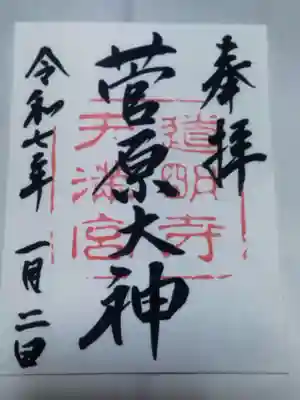 奉拝
菅原大神
道明寺
天満宮
令和七年 一月二日